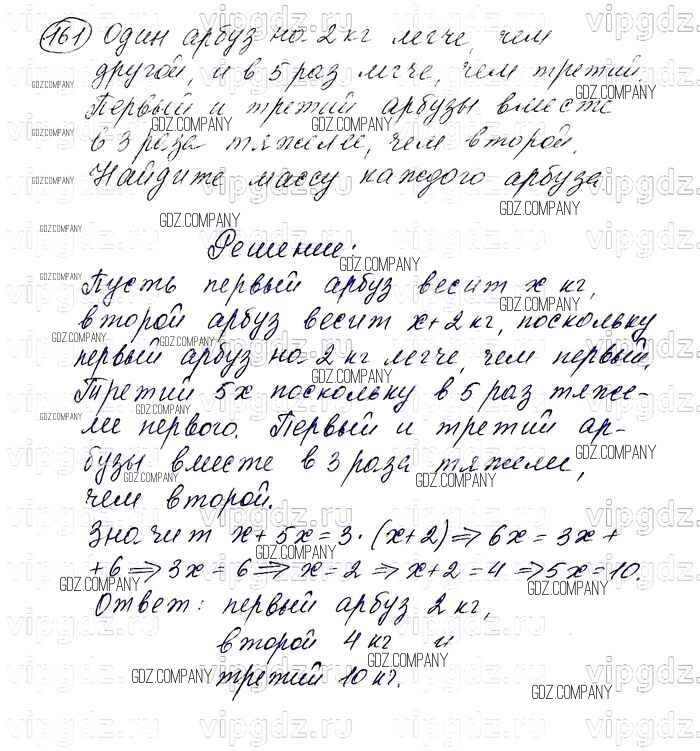 161 Один арбуз на 2 кг легче, чем
другой, и в 5 раз легче, чем третий.
Первый и третий арбузы вместе
в 3 раза тяжелее, чем второй.
Найдите массу каждого арбуза
Решение:
Пусть первый арбуз весит x кг,
второй арбуз весит x+2 кг, поскольку
первый арбуз на 2 кг легче, чем первый.
Третий 5x поскольку в 5 раз тяже-
лее первого. Первый и третий ар-
бузы вместе в 3 раза тяжелее,
чем второй.
Значит x+5x=3·(x+2)⇒6x=3x+
+6⇒3x=6⇒x=2⇒x+2=4⇒5x=10.
Ответ: первый арбуз 2 кг,
второй 4 кг и
третий 10 кг.
vipgdz.ru
GDZ.COMPANY